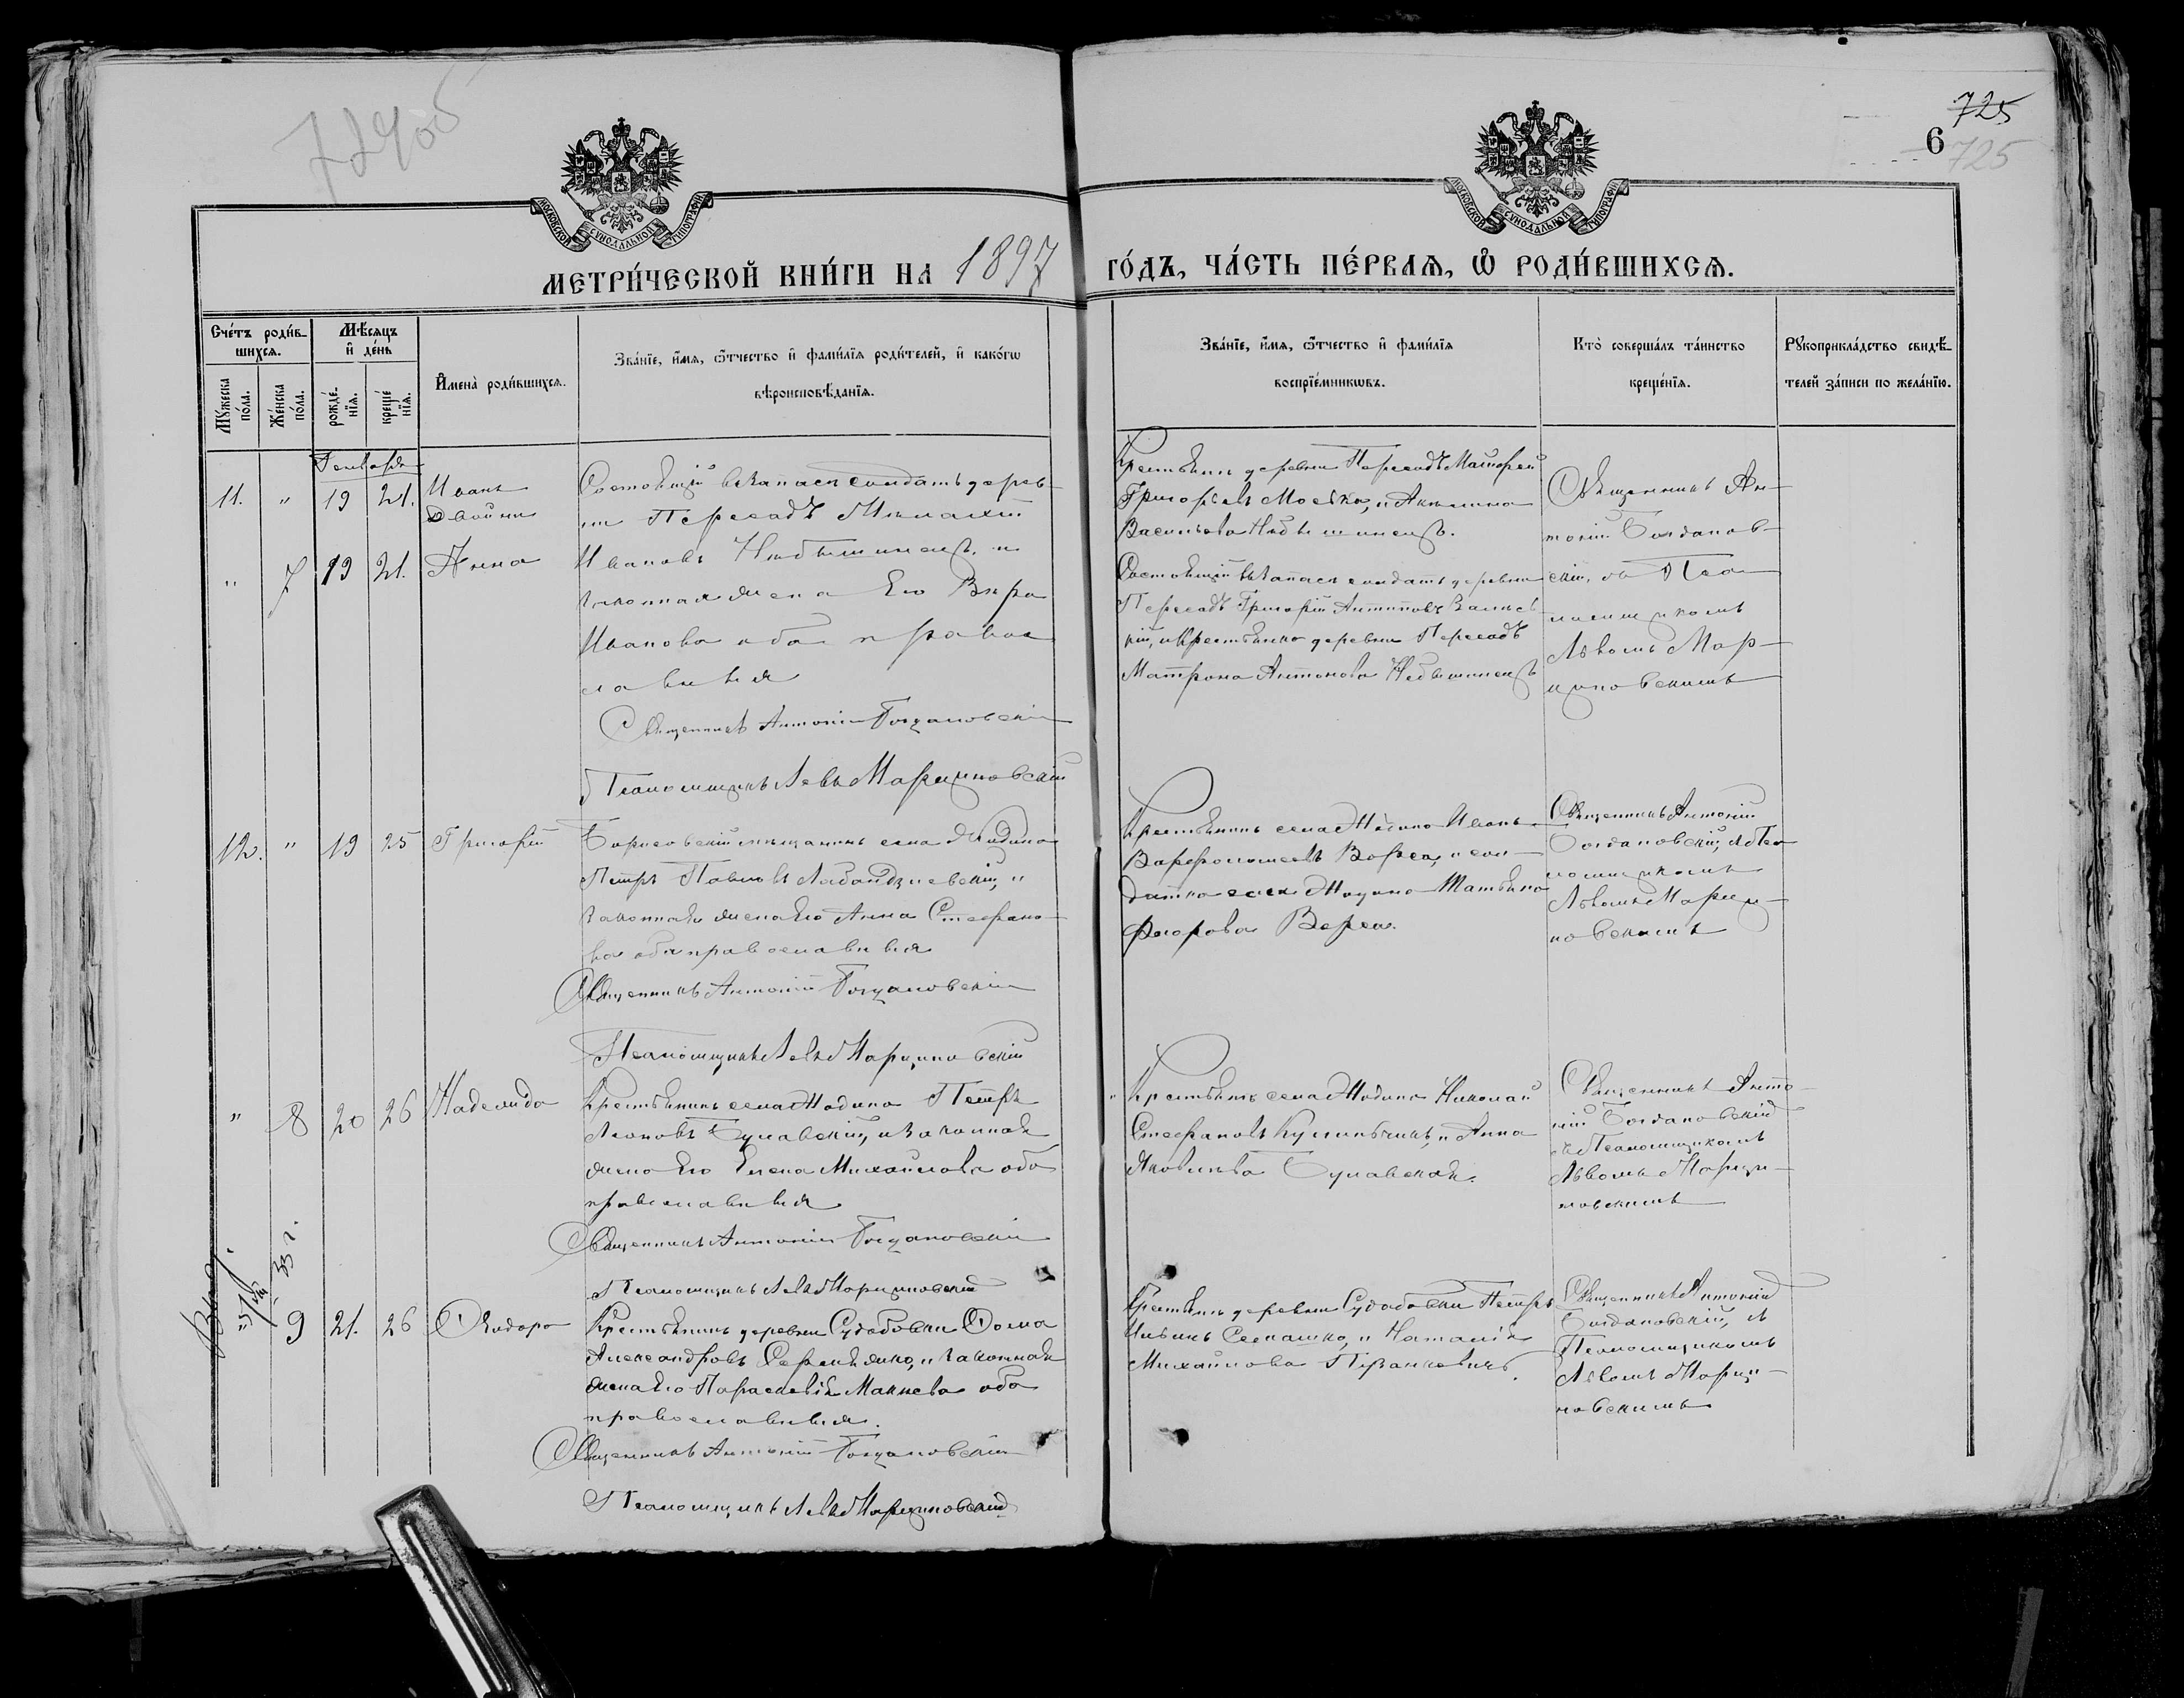 72405
725
6
725
МОСКОВСКОЙ СУНОДАЛЬНОЙ ТИПОГРАФИИ
МОСКОВСКОЙ СУНОДАЛЬНОЙ ТИПОГРАФИИ
МЕТРИ́ЧЕСКОЙ КНИ́ГИ НА 1897 ГО́ДЪ, ЧА́СТЬ ПЕ́РВАѦ, Ѡ҆ РОДИ́ВШИХСѦ.
Сче́тъ роди́в-
шихсѧ.
Мꙋ́жеска по́ла.
Же́нска по́ла.
Мѣ́сѧцъ и҆ де́нь
рожде́-нїѧ.
креще́-нїѧ.
И҆мена̀ роди́вшихсѧ.
Зва́нїе, и҆́мѧ, ѻ҆́тчество и҆ фами́лїѧ роди́телей, и҆ како́гѡ
вѣроисповѣ́данїѧ.
Зва́нїе, и҆́мѧ, ѻ҆́тчество и҆ фами́лїѧ
воспрїе́мникѡвъ.
Кто̀ соверша́лъ та́инство
креще́нїѧ.
Рꙋкоприкла́дство свидѣ́-
телей за́писи по жела́нїю.
Генварь
11. " 19 21. Иванъ
двойни
" 7 19 21. Анна
Состоящій въ запасѣ солдатъ дерев-
ни Пересадъ Малахій
Ивановъ и
законная жена его Вера
Иванова оба право
славныя
Священникъ Антоній Богдановскій
Псаломщикъ Левъ Марциновскій
Крестьянинъ деревни Пересадъ
Григорьевъ и Акилина
Васильева
Состоящій въ запасѣ солдатъ деревни
Пересадъ Григорій Антоновъ
кій, и Крестьянка деревни Пересадъ
Матрона Антонова
Священникъ Ан-
тоній Богданов-
скій, съ Пса-
ломщикомъ
Львомъ Мар-
циновскимъ
12. " 19 25 Григорій
Борисовскій мѣщанинъ села Жодина
Петръ Павловъ и
законная жена его Анна Стефано-
ва оба православныя
Священникъ Антоній Богдановскій
Псаломщикъ Левъ Марциновскій
Крестьянинъ села Жодина Иванъ
Варфоломеевъ и сол-
датка села Жодина Татьяна
Федорова
Священникъ Антоній
Богдановскій, съ Пса
ломщикомъ
Львомъ Марци-
новскимъ
" 8 20 26 Надежда
Крестьянинъ села Жодина Петръ
Леоновъ Булавскій, и законная
жена его Елена Михайлова оба
православныя
Священникъ Антоній Богдановскій
Псаломщикъ Левъ Марциновскій
Крестьянинъ села Жодина Николай
Стефановъ и Анна
Яковлева Булавская.
Священникъ Анто-
ній Богдановскій
съ Псаломщикомъ
Львомъ Марци-
новскимъ
" 9 21. 26 Ѳеодора
Крестьянинъ деревни Судобовки Ѳома
Александровъ и законная
жена его Параскевія оба
православныя.
Священникъ Антоній Богдановскій
Псаломщикъ Левъ Марциновскій
Крестьянинъ деревни Судобовки Петръ
Ильинъ и Наталія
Михайлова
Священникъ Антоній
Богдановскій, съ
Псаломщикомъ
Львомъ Марци-
новскимъ